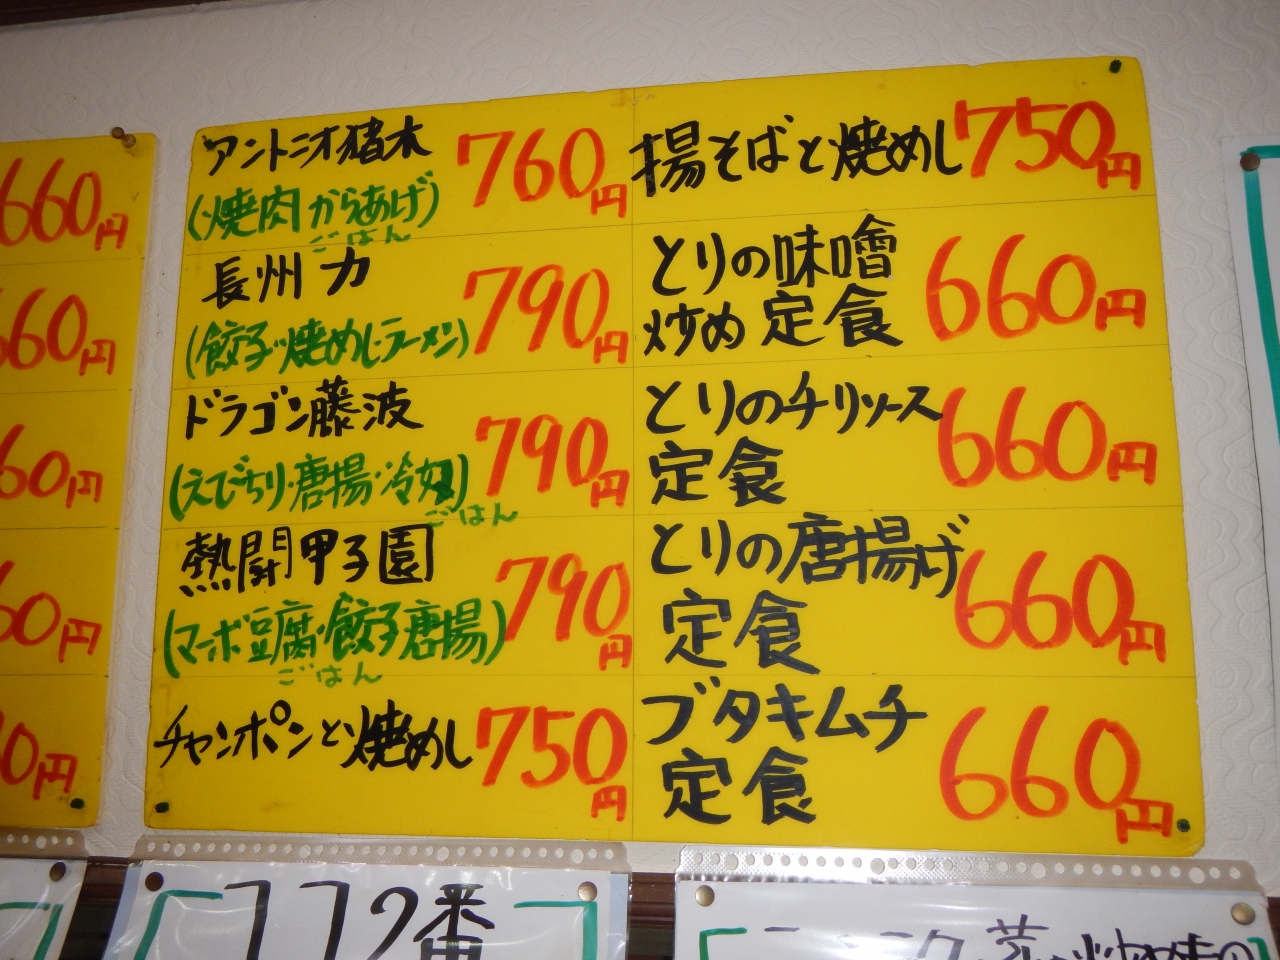 660円
660円
60円
60円
0円
アントニオ猪木 760円
(焼肉 からあげ)
ごはん
長州 力 790円
(餃子・焼めし・ラーメン)
ドラゴン藤波 790円
(えびちり・唐揚・冷奴)
ごはん
熱闘甲子園 790円
(マーボ豆腐・餃子唐揚)
ごはん
チャンポンと焼めし 750円
揚そばと焼めし 750円
とりの味噌
炒め 定食 660円
とりのチリソース
定食 660円
とりの唐揚げ
定食 660円
ブタキムチ
定食 660円
772番